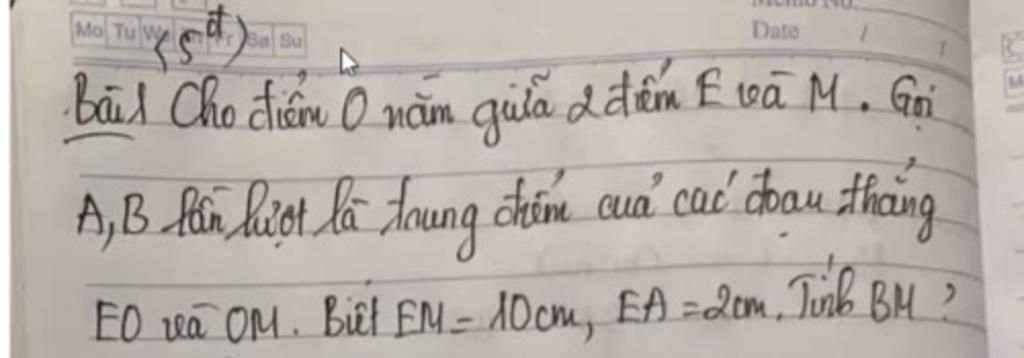 Memo No.
Mo Tu We Fr Sa Su
Date / /
(5đ)
Bài 1 Cho điểm O nằm giữa 2 điểm E và M. Gọi
A, B lần lượt là trung điểm của các đoạn thẳng
EO và OM. Biết EM = 10cm, EA = 2cm. Tính BM?